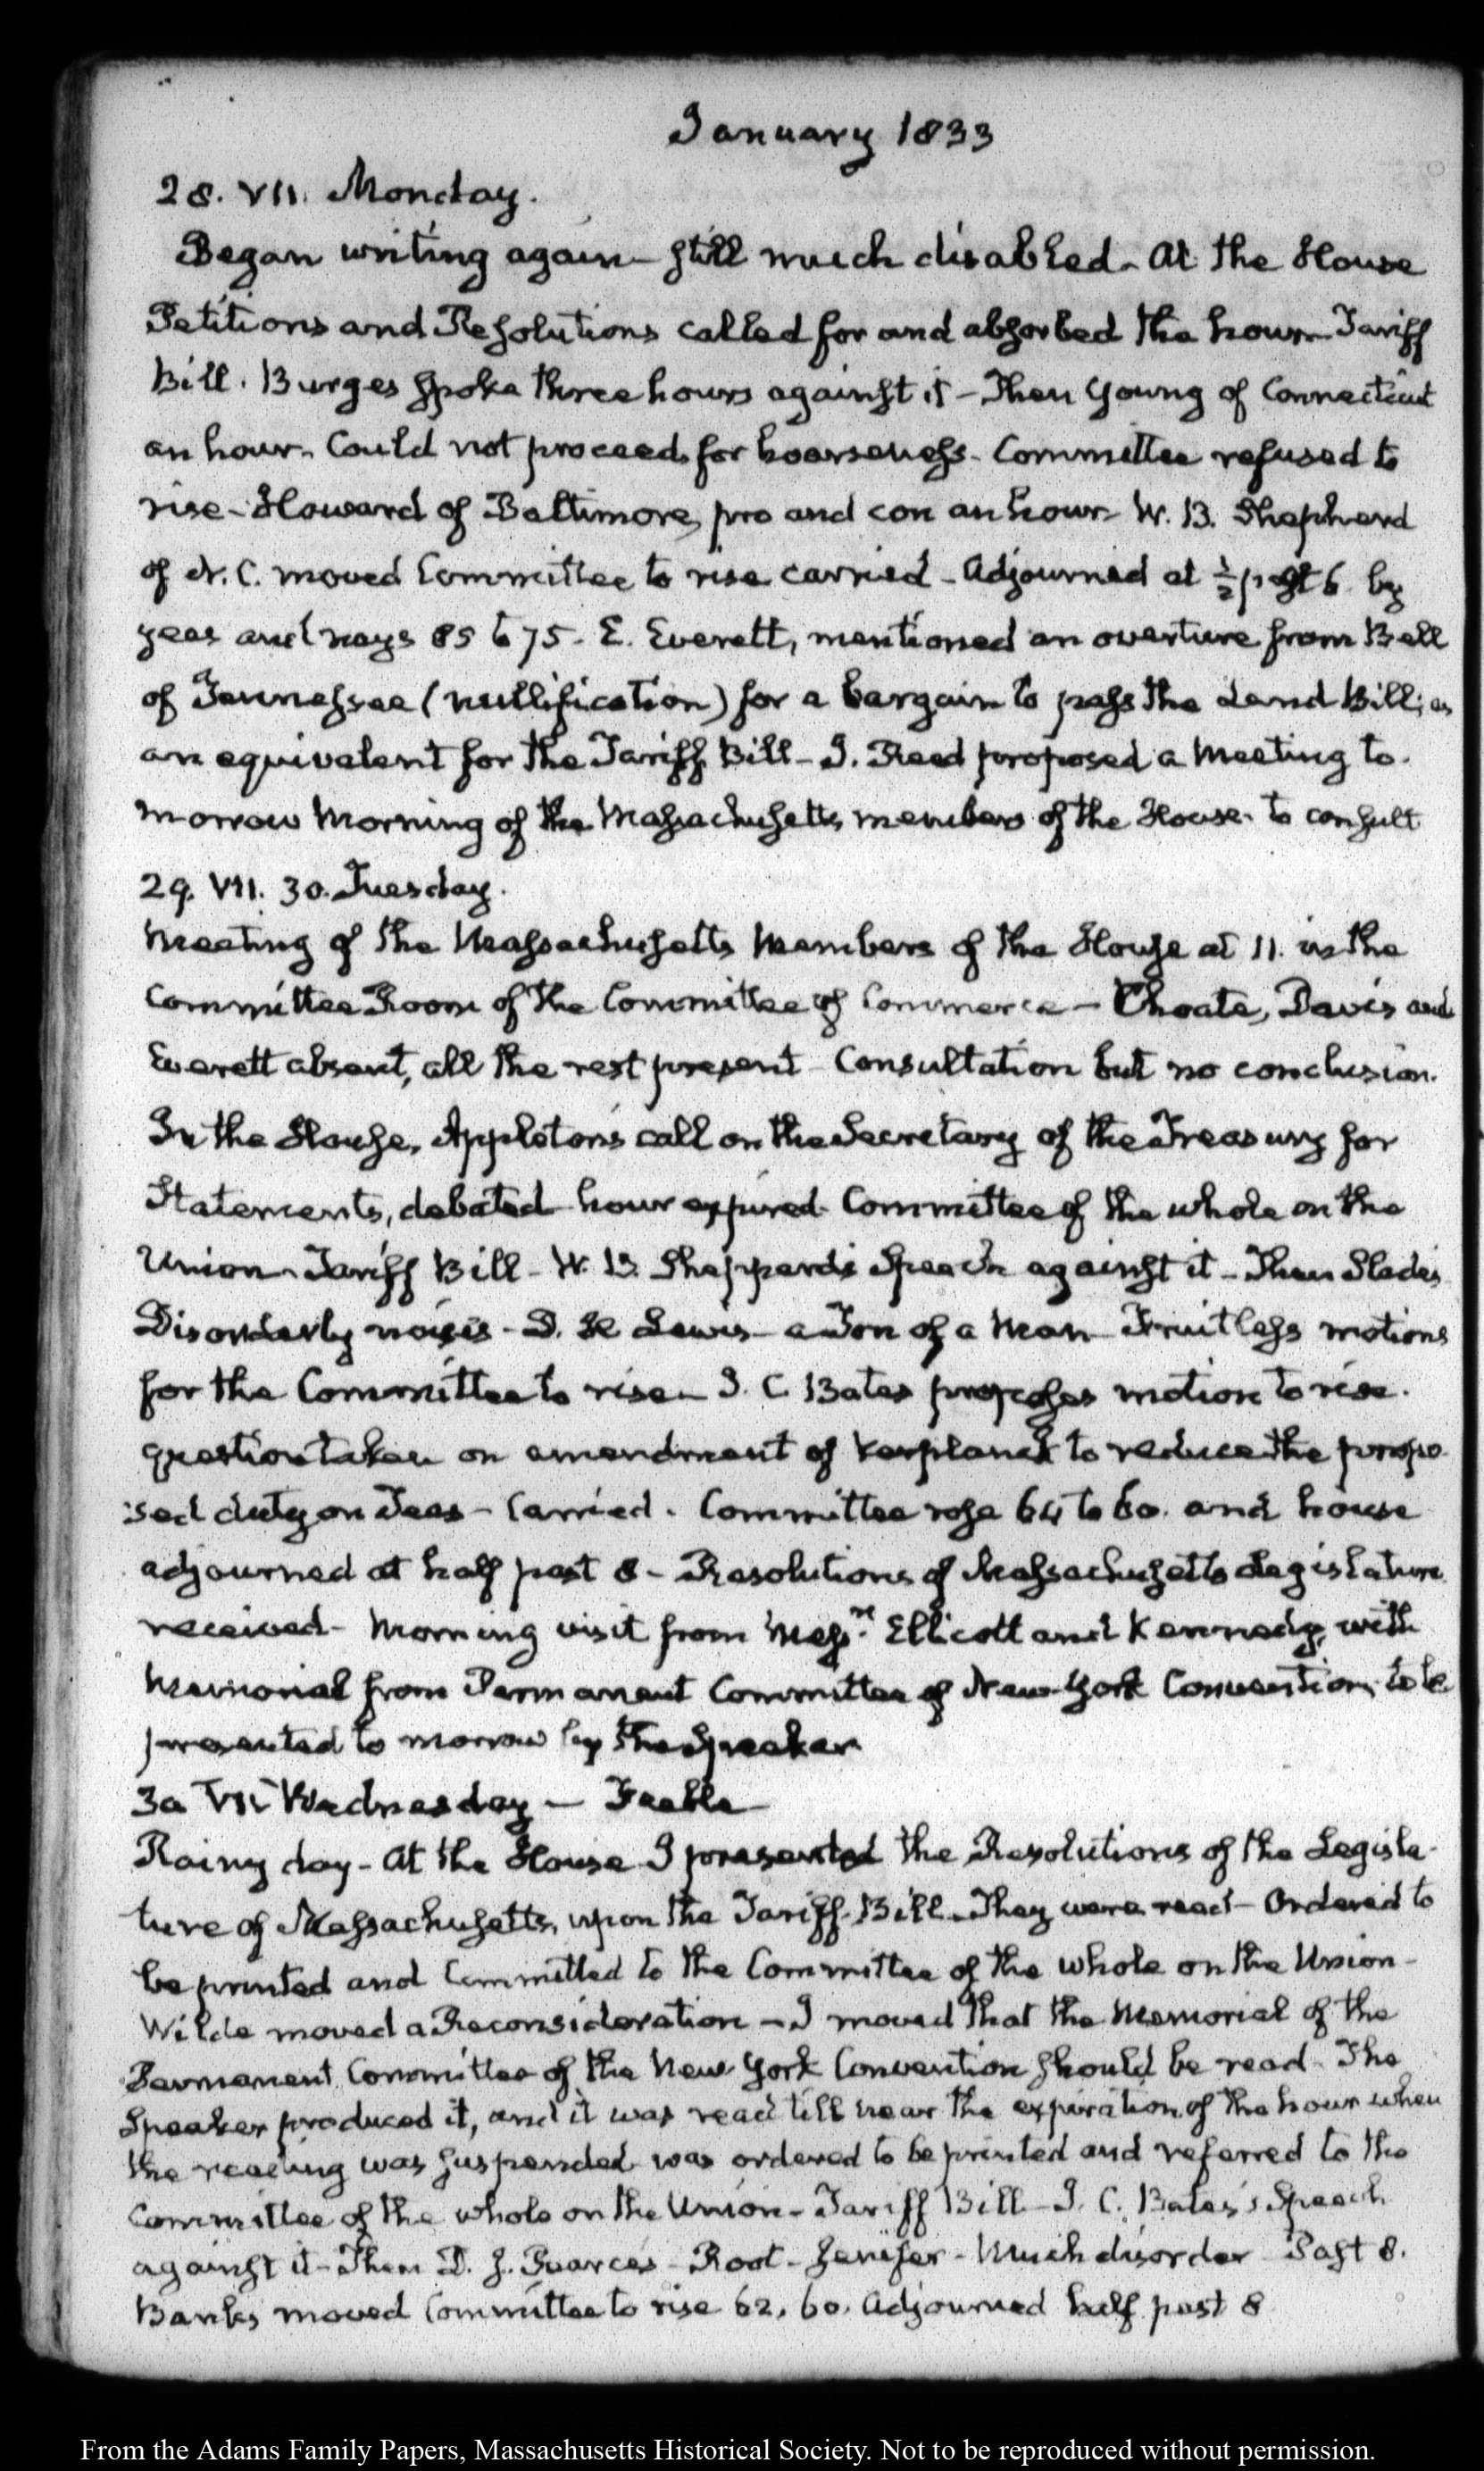 January 1833
28. VII. Monday.
Began writing again - still much disabled. At the House
Petitions and Resolutions called for and absorbed the hour. Tariff
Bill. Burges spoke three hours against it - Then Young of Connecticut
an hour. Could not proceed for hoarseness. Committee refused to
rise - Howard of Baltimore, pro and con an hour - W. B. Shepherd
of N. C. moved Committee to rise carried - Adjourned at ½ past 6 by
yeas and nays 85 to 75. E. Everett, mentioned an overture from Bell
of Tennessee (nullification) for a bargain to pass the Land Bill; as
an equivalent for the Tariff Bill - J. Reed proposed a meeting to-
morrow Morning of the Massachusetts members of the House to consult
29. VII. 30. Tuesday.
Meeting of the Massachusetts Members of the House at 11. in the
Committee Room of the Committee of Commerce - Choate, Davis and
Everett absent, all the rest present - Consultation but no conclusion.
In the House, Appleton's call on the Secretary of the Treasury for
Statements, debated - hour expired. Committee of the whole on the
Union - Tariff Bill - W. B. Shepperd's Speech against it - Then Slade's
Disorderly noises - D. H. Lewis - a Ton of a Man - Fruitless motions
for the Committee to rise - I. C. Bates proposes motion to rise.
question taken on amendment of Verplanck to reduce the propo-
sed duty on Teas - Carried. Committee rose 64 to 60. and house
adjourned at half past 8 - Resolutions of Massachusetts Legislature
received - Morning visit from Messrs. Ellicott and Kennedy, with
Memorial from Permanent Committee of New-York Convention, to be
presented to morrow by the Speaker
30 VII Wednesday - Feeble
Rainy day - At the House I presented the Resolutions of the Legisla-
ture of Massachusetts, upon the Tariff Bill. They were read - Ordered to
be printed and Committed to the Committee of the whole on the Union -
Wilde moved a Reconsideration - I moved that the Memorial of the
Permanent Committee of the New York Convention should be read. The
Speaker produced it, and it was read till near the expiration of the hour when
the reading was suspended was ordered to be printed and referred to the
Committee of the whole on the Union - Tariff Bill - I. C. Bates's Speech
against it - Then D. J. Pearce's - Root - Jenifer - Much disorder Past 8.
Banks moved Committee to rise 62. 60. Adjourned half past 8
From the Adams Family Papers, Massachusetts Historical Society. Not to be reproduced without permission.